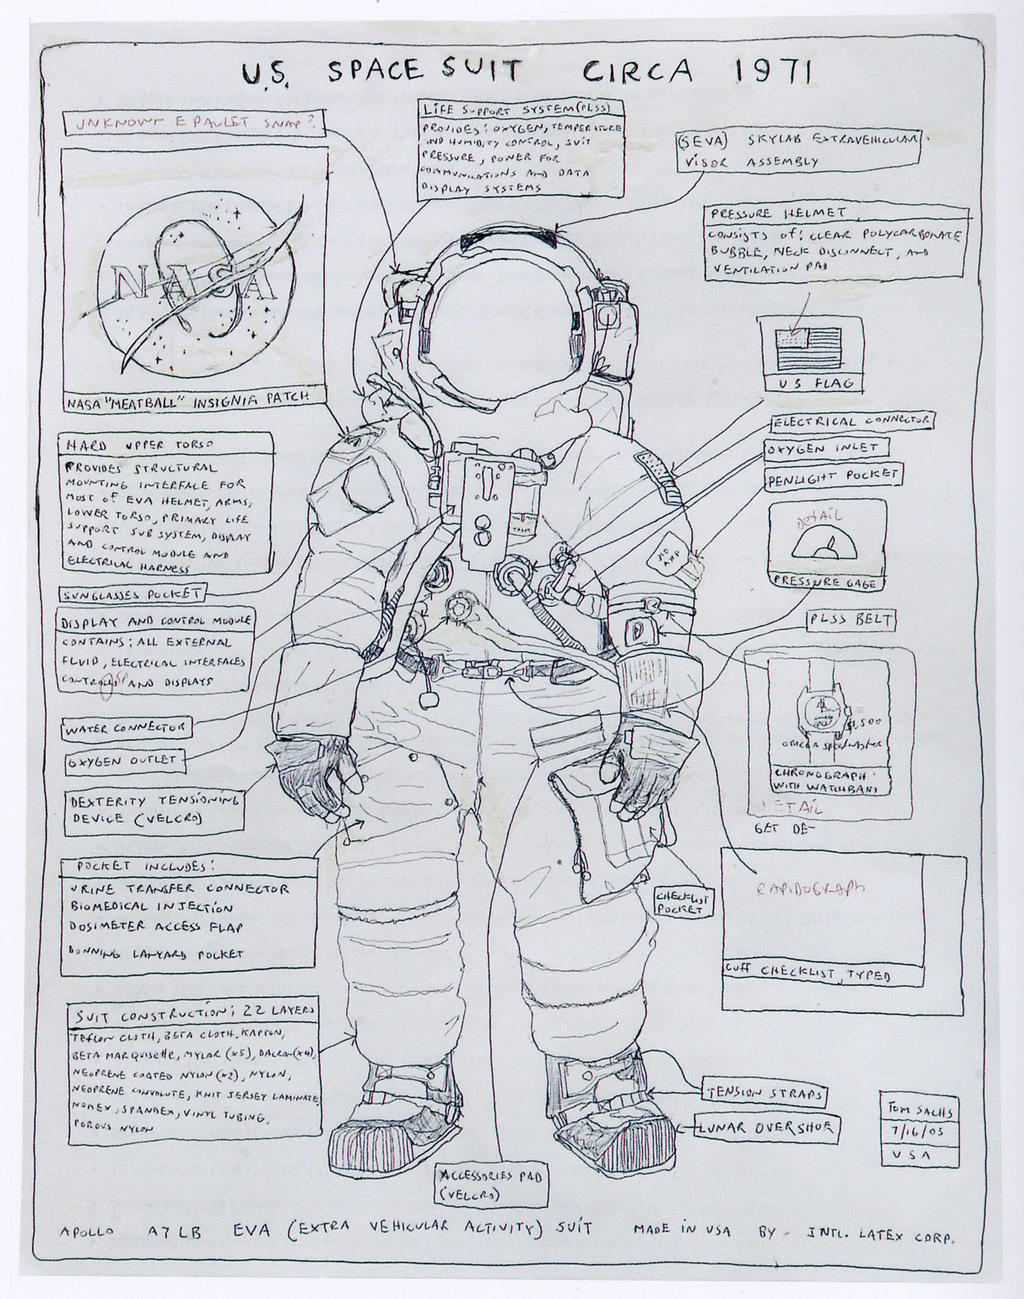 U.S. SPACE SUIT CIRCA 1971
UNKNOWN EPAULET SNAP?
LIFE SUPPORT SYSTEM (PLSS)
PROVIDES: OXYGEN, TEMPERATURE
AND HUMIDITY CONTROL, SUIT
PRESSURE, POWER FOR
COMMUNICATIONS AND DATA
DISPLAY SYSTEMS
(SEVA) SKYLAB EXTRAVEHICULAR
VISOR ASSEMBLY
PRESSURE HELMET
CONSISTS OF: CLEAR POLYCARBONATE
BUBBLE, NECK DISCONNECT, AND
VENTILATION PAD
NASA
NASA "MEATBALL" INSIGNIA PATCH
US FLAG
ELECTRICAL CONNECTOR
OXYGEN INLET
PENLIGHT POCKET
HARD UPPER TORSO
PROVIDES STRUCTURAL
MOUNTING INTERFACE FOR
MOST OF EVA HELMET, ARMS,
LOWER TORSO, PRIMARY LIFE
SUPPORT SUB SYSTEM, DISPLAY
AND CONTROL MODULE AND
ELECTRICAL HARNESS
DETAIL
PRESSURE GAGE
SUNGLASSES POCKET
DISPLAY AND CONTROL MODULE
CONTAINS: ALL EXTERNAL
FLUID, ELECTRICAL INTERFACES
CONTROLS AND DISPLAYS
SP
PLSS BELT
WATER CONNECTOR
OXYGEN OUTLET
$1,500
OMEGA SPEEDMASTER
CHRONOGRAPH
WITH WATCHBAND
DETAIL
GET DE-
DEXTERITY TENSIONING
DEVICE (VELCRO)
POCKET INCLUDES:
URINE TRANSFER CONNECTOR
BIOMEDICAL INJECTION
DOSIMETER ACCESS FLAP
DONNING LANYARD POCKET
CHECKLIST
POCKET
RAPIDOGRAPH
CUFF CHECKLIST, TYPED
SUIT CONSTRUCTION: 22 LAYERS
TEFLON CLOTH, BETA CLOTH, KAPTON,
BETA MARQUISETTE, MYLAR (x5), DACRON (x4),
NEOPRENE COATED NYLON (x2), NYLON,
NEOPRENE CONVOLUTE, KNIT JERSEY LAMINATE,
NOMEX, SPANDEX, VINYL TUBING,
POROUS NYLON
TENSION STRAPS
LUNAR OVERSHOE
TOM SACHS
7/16/05
USA
ACCESSORIES PAD
(VELCRO)
APOLLO A7LB EVA (EXTRA VEHICULAR ACTIVITY) SUIT MADE IN USA BY - INTL. LATEX CORP.